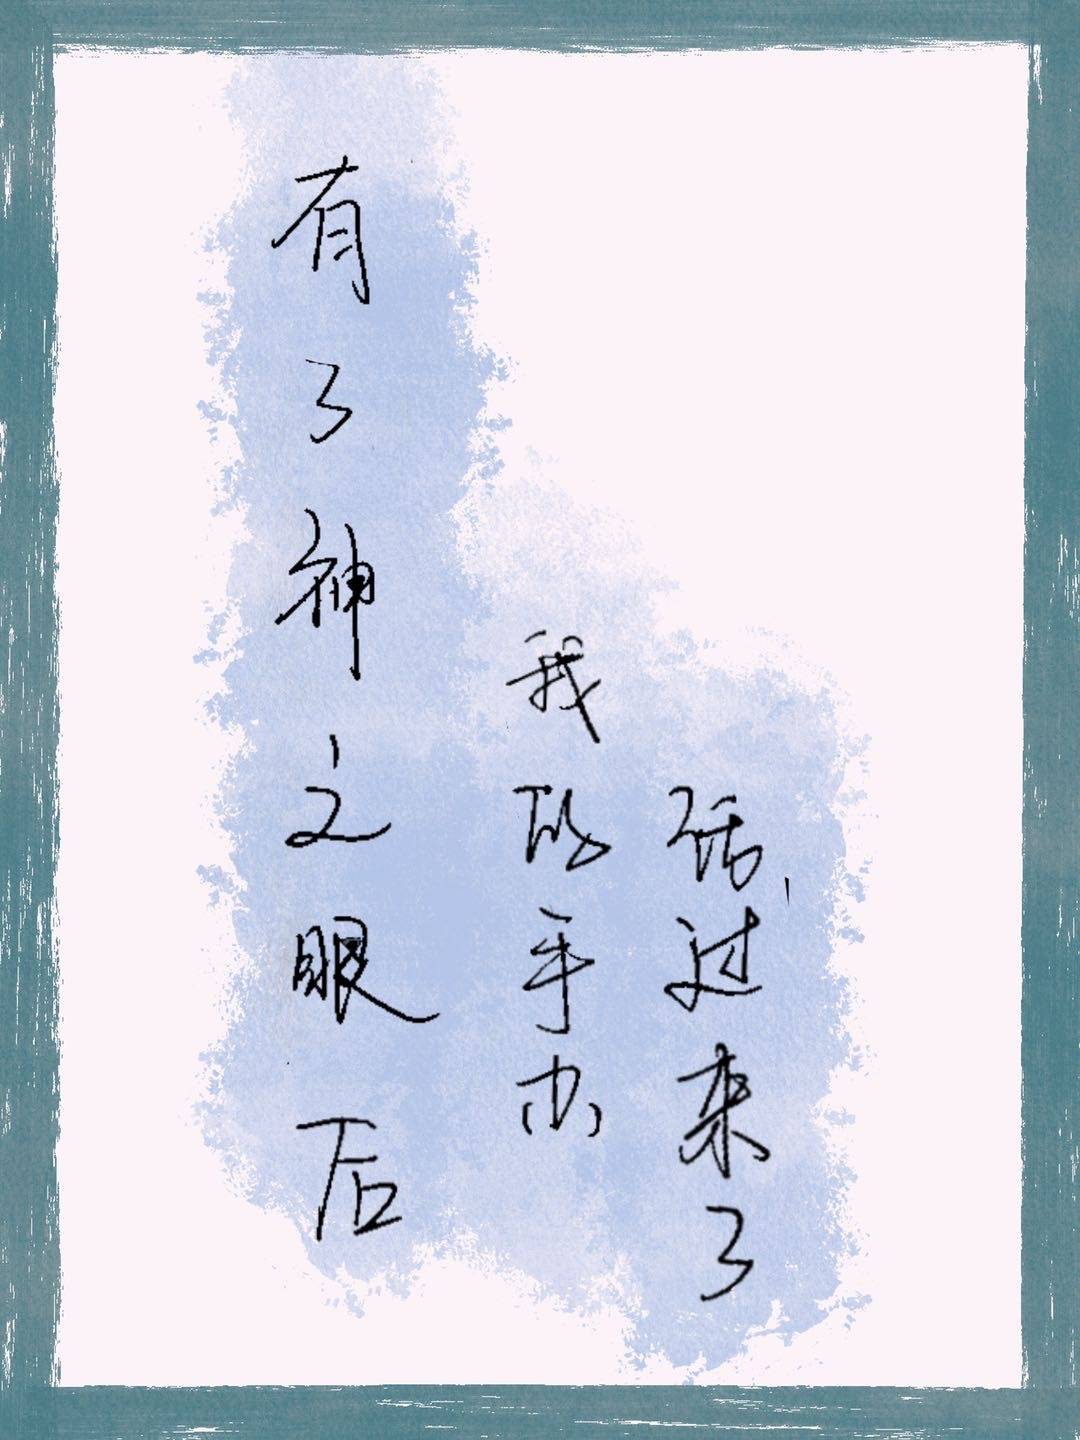 有了神之眼后
我的手办
活过来了